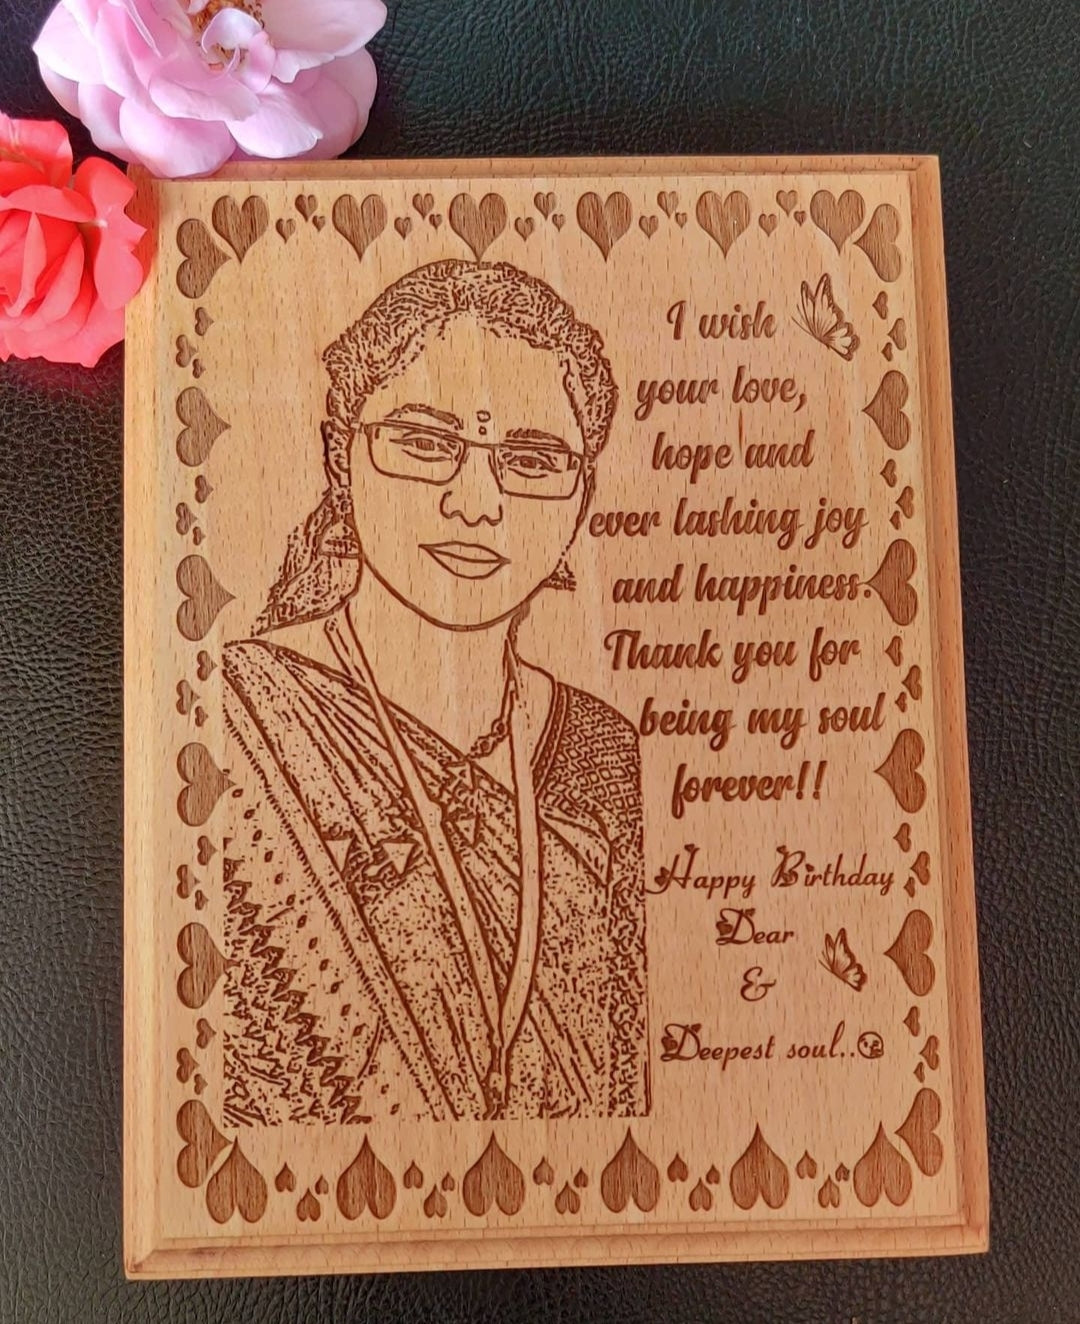 I wish
your love,
hope and
ever lashing joy
and happiness.
Thank you for
being my soul
forever!!
Happy Birthday
Dear
&
Deepest soul..😘